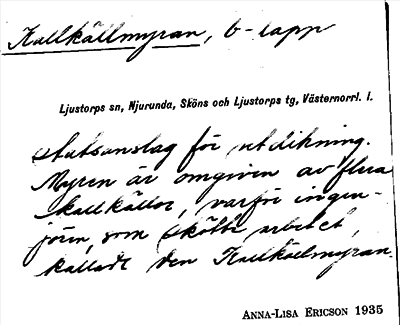 Kallkällmyran, 6-lapp
Ljustorps sn, Njurunda, Sköns och Ljustorps tg, Västernorrl. l.
Statsanslag för utdikning.
Myren är omgiven av flera
kallkällor, varför ingen-
jören, som skötte arbetet,
kallade den Kallkällmyran.
ANNA-LISA ERICSON 1935